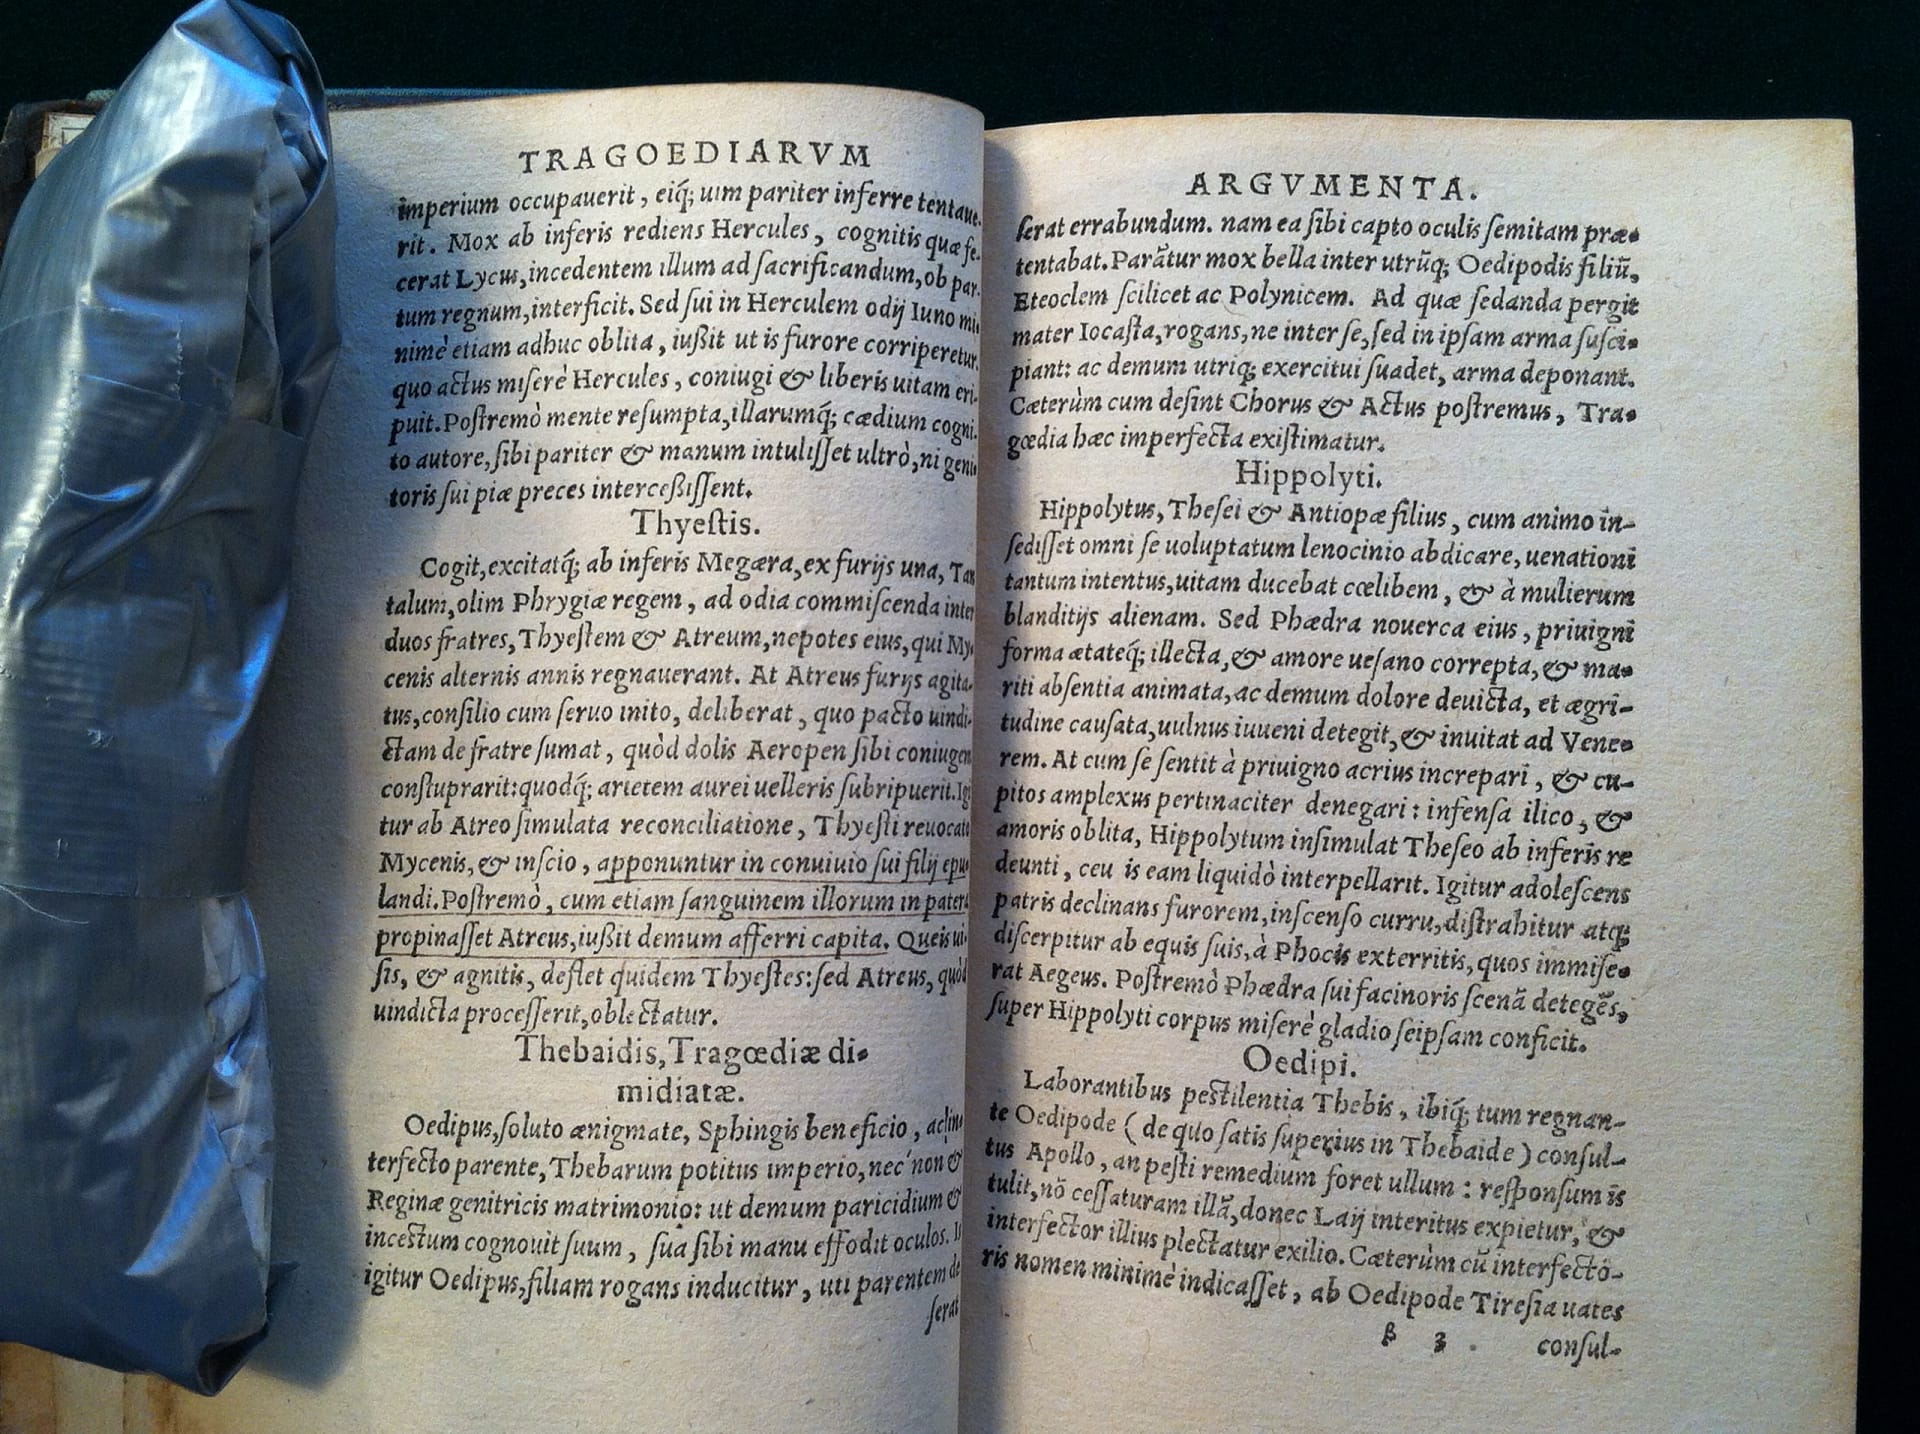 TRAGOEDIARVM
imperium occupauerit, eiq́; uim pariter inferre tentaue-
rit. Mox ab inferis rediens Hercules, cognitis quæ fe-
cerat Lycus, incedentem illum ad ſacrificandum, ob par-
tum regnum, interficit. Sed ſui in Herculem odij Iuno mi-
nimè etiam adhuc oblita, iußit ut is furore corriperetur.
quo actus miſerè Hercules, coniugi & liberis uitam eri-
puit. Poſtremò mente reſumpta, illarumq́; cædium cogni-
to autore, ſibi pariter & manum intuliſſet ultrò, ni geni-
toris ſui piæ preces interceßiſſent.
Thyeſtis.
Cogit, excitatq́; ab inferis Megæra, ex furijs una, Tan
talum, olim Phrygiæ regem, ad odia commiſcenda inter
duos fratres, Thyeſtem & Atreum, nepotes eius, qui My-
cenis alternis annis regnauerant. At Atreus furijs agita-
tus, conſilio cum ſeruo inito, deliberat, quo pacto uindi-
ctam de fratre ſumat, quòd dolis Aeropen ſibi coniugem
conſtuprarit: quodq́; arietem aurei uelleris ſubripuerit. Igi
tur ab Atreo ſimulata reconciliatione, Thyeſti reuocato
Mycenis, & inſcio, apponuntur in conuiuio ſui filij epu-
landi. Poſtremò, cum etiam ſanguinem illorum in patera
propinaſſet Atreus, iußit demum afferri capita. Queis ui-
ſis, & agnitis, deflet quidem Thyeſtes: ſed Atreus, quòd
uindicta proceſſerit, oblectatur.
Thebaidis, Tragœdiæ di-
midiatæ.
Oedipus, ſoluto ænigmate, Sphingis beneficio, ac in-
terfecto parente, Thebarum potitus imperio, nec non &
Reginæ genitricis matrimonio: ut demum paricidium &
inceſtum cognouit ſuum, ſua ſibi manu effodit oculos. Is
igitur Oedipus, filiam rogans inducitur, uti parentem de
ſerat
ARGVMENTA.
ſerat errabundum. nam ea ſibi capto oculis ſemitam præ-
tentabat. Parãtur mox bella inter utrũq; Oedipodis filiũ,
Eteoclem ſcilicet ac Polynicem. Ad quæ ſedanda pergit
mater Iocaſta, rogans, ne inter ſe, ſed in ipſam arma ſuſci-
piant: ac demum utriq; exercitui ſuadet, arma deponant.
Cæterùm cum deſint Chorus & Actus poſtremus, Tra-
gœdia hæc imperfecta exiſtimatur.
Hippolyti.
Hippolytus, Theſei & Antiopæ filius, cum animo in-
ſediſſet omni ſe uoluptatum lenocinio abdicare, uenationi
tantum intentus, uitam ducebat cœlibem, & à mulierum
blanditijs alienam. Sed Phædra nouerca eius, priuigni
forma ætateq́; illecta, & amore ueſano correpta, & ma-
riti abſentia animata, ac demum dolore deuicta, et ægri-
tudine cauſata, uulnus iuueni detegit, & inuitat ad Vene-
rem. At cum ſe ſentit à priuigno acrius increpari, & cu-
pitos amplexus pertinaciter denegari: infenſa ilico, &
amoris oblita, Hippolytum inſimulat Theſeo ab inferis re
deunti, ceu is eam liquidò interpellarit. Igitur adoleſcens
patris declinans furorem, inſcenſo curru, diſtrahitur atq;
diſcerpitur ab equis ſuis, à Phocis exterritis, quos immiſe-
rat Aegeus. Poſtremò Phædra ſui facinoris ſcenã detegẽs,
ſuper Hippolyti corpus miſerè gladio ſeipſam conficit.
Oedipi.
Laborantibus peſtilentia Thebis, ibiq́; tum regnan-
te Oedipode (de quo ſatis ſuperius in Thebaide) conſul-
tus Apollo, an peſti remedium foret ullum: reſponſum is
tulit, nõ ceſſaturam illã, donec Laij interitus expietur, &
interfector illius plectatur exilio. Cæterùm cũ interfecto-
ris nomen minimè indicaſſet, ab Oedipode Tireſia uates
β 3 conſul-